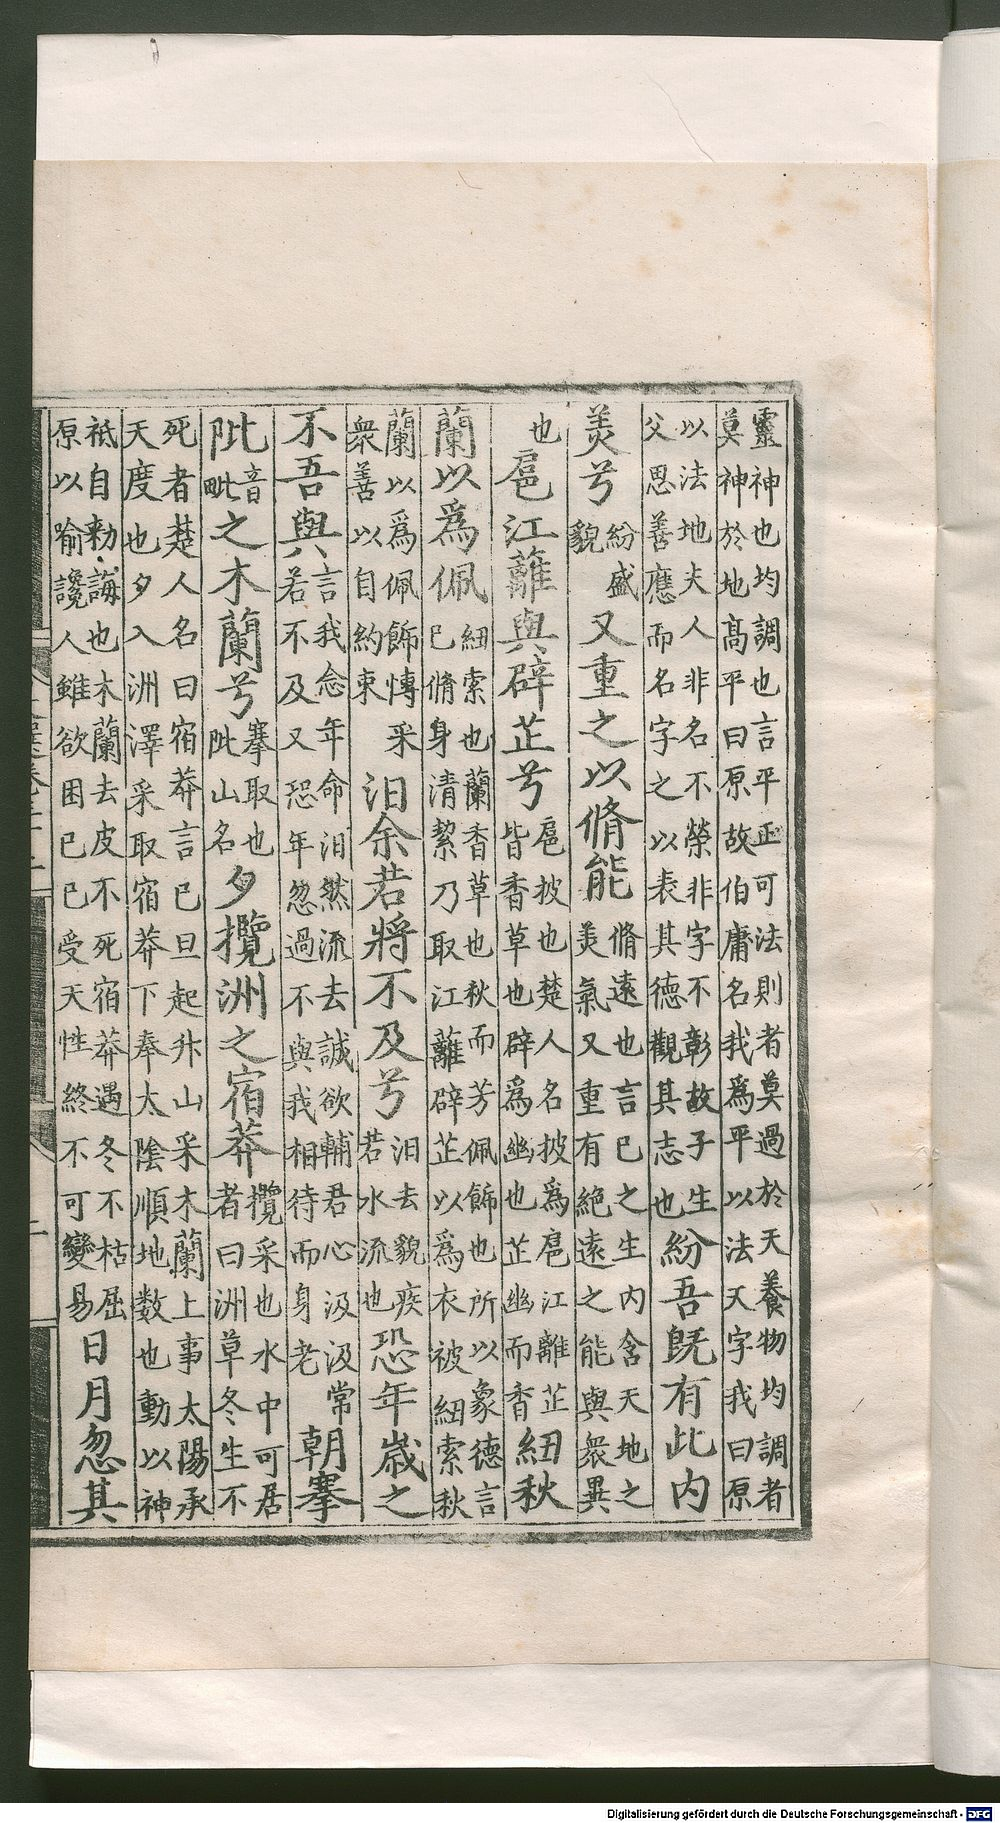 靈神也均調也言平正可法則者莫過於天養物均調者
莫神於地髙平曰原故伯庸名我爲平以法天字我曰原
以法地夫人非名不榮非字不彰故子生
父思善應而名字之以表其德觀其志也
紛吾旣有此内
羙兮
紛盛
貌
又重之以脩能
脩遠也言已之生内含天地之
羙氣又重有絶遠之能與衆異
也
扈江蘺與辟芷兮
扈披也楚人名披爲扈江離芷
皆香草也辟爲幽也芷幽而香
紐秋
蘭以爲佩
紐索也蘭香草也秋而芳佩飾也所以象德言
已脩身清絜乃取江蘺辟芷以爲衣被紐索秋
蘭以爲佩飾愽采
衆善以自約束
汨余若將不及兮
汨去貌疾
若水流也
恐年歳之
不吾與
言我念年命汨然流去誠欲輔君心汲汲常
若不及又恐年忽過不與我相待而身老
朝搴
阰
音
毗
之木蘭兮
搴取也
阰山名
夕攬洲之宿莽
攬采也水中可居
者曰洲草冬生不
死者楚人名曰宿莽言已旦起升山采木蘭上事太陽承
天度也夕入洲澤采取宿莽下奉太陰順地数也動以神
祗自勑誨也木蘭去皮不死宿莽遇冬不枯屈
原以喻讒人雖欲困已已受天性終不可變易
日月忽其
Digitalisierung gefördert durch die Deutsche Forschungsgemeinschaft - DFG